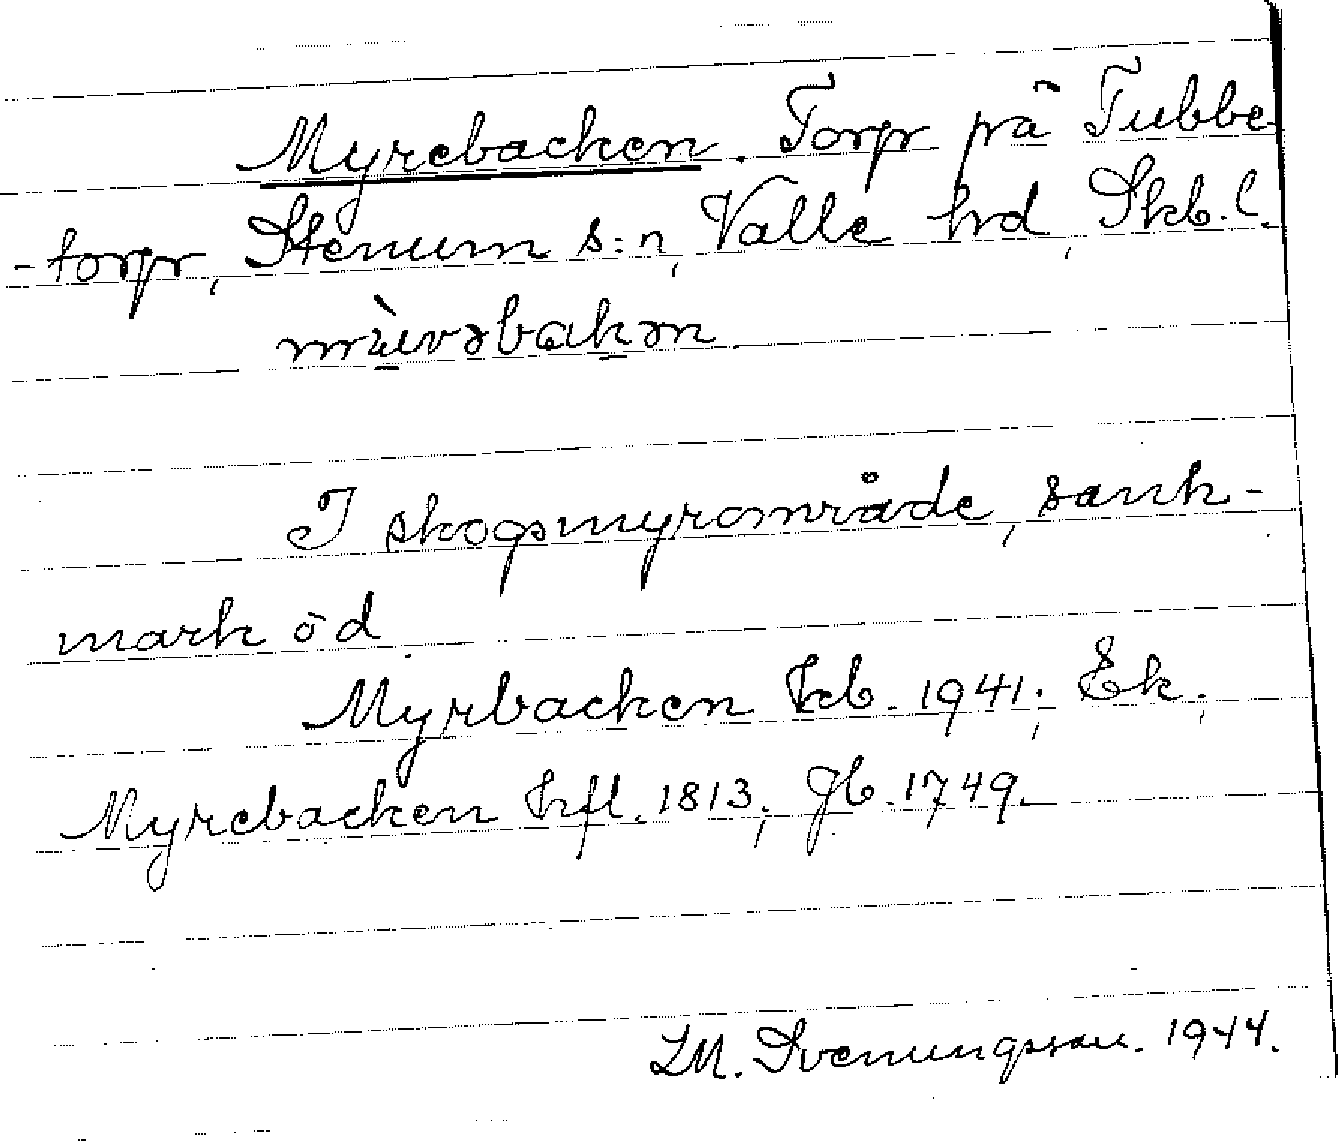 Myrebacken. Torp på Tubbe-
-torp, Stenum s:n, Valle hrd, Skb. l.
I skogsmyrområde, sank-
mark öd.
Myrbacken Jcb. 1941; Ek.;
Myrebacken hfl. 1813; Jb. 1749.
LM. Svenungsson. 1944.